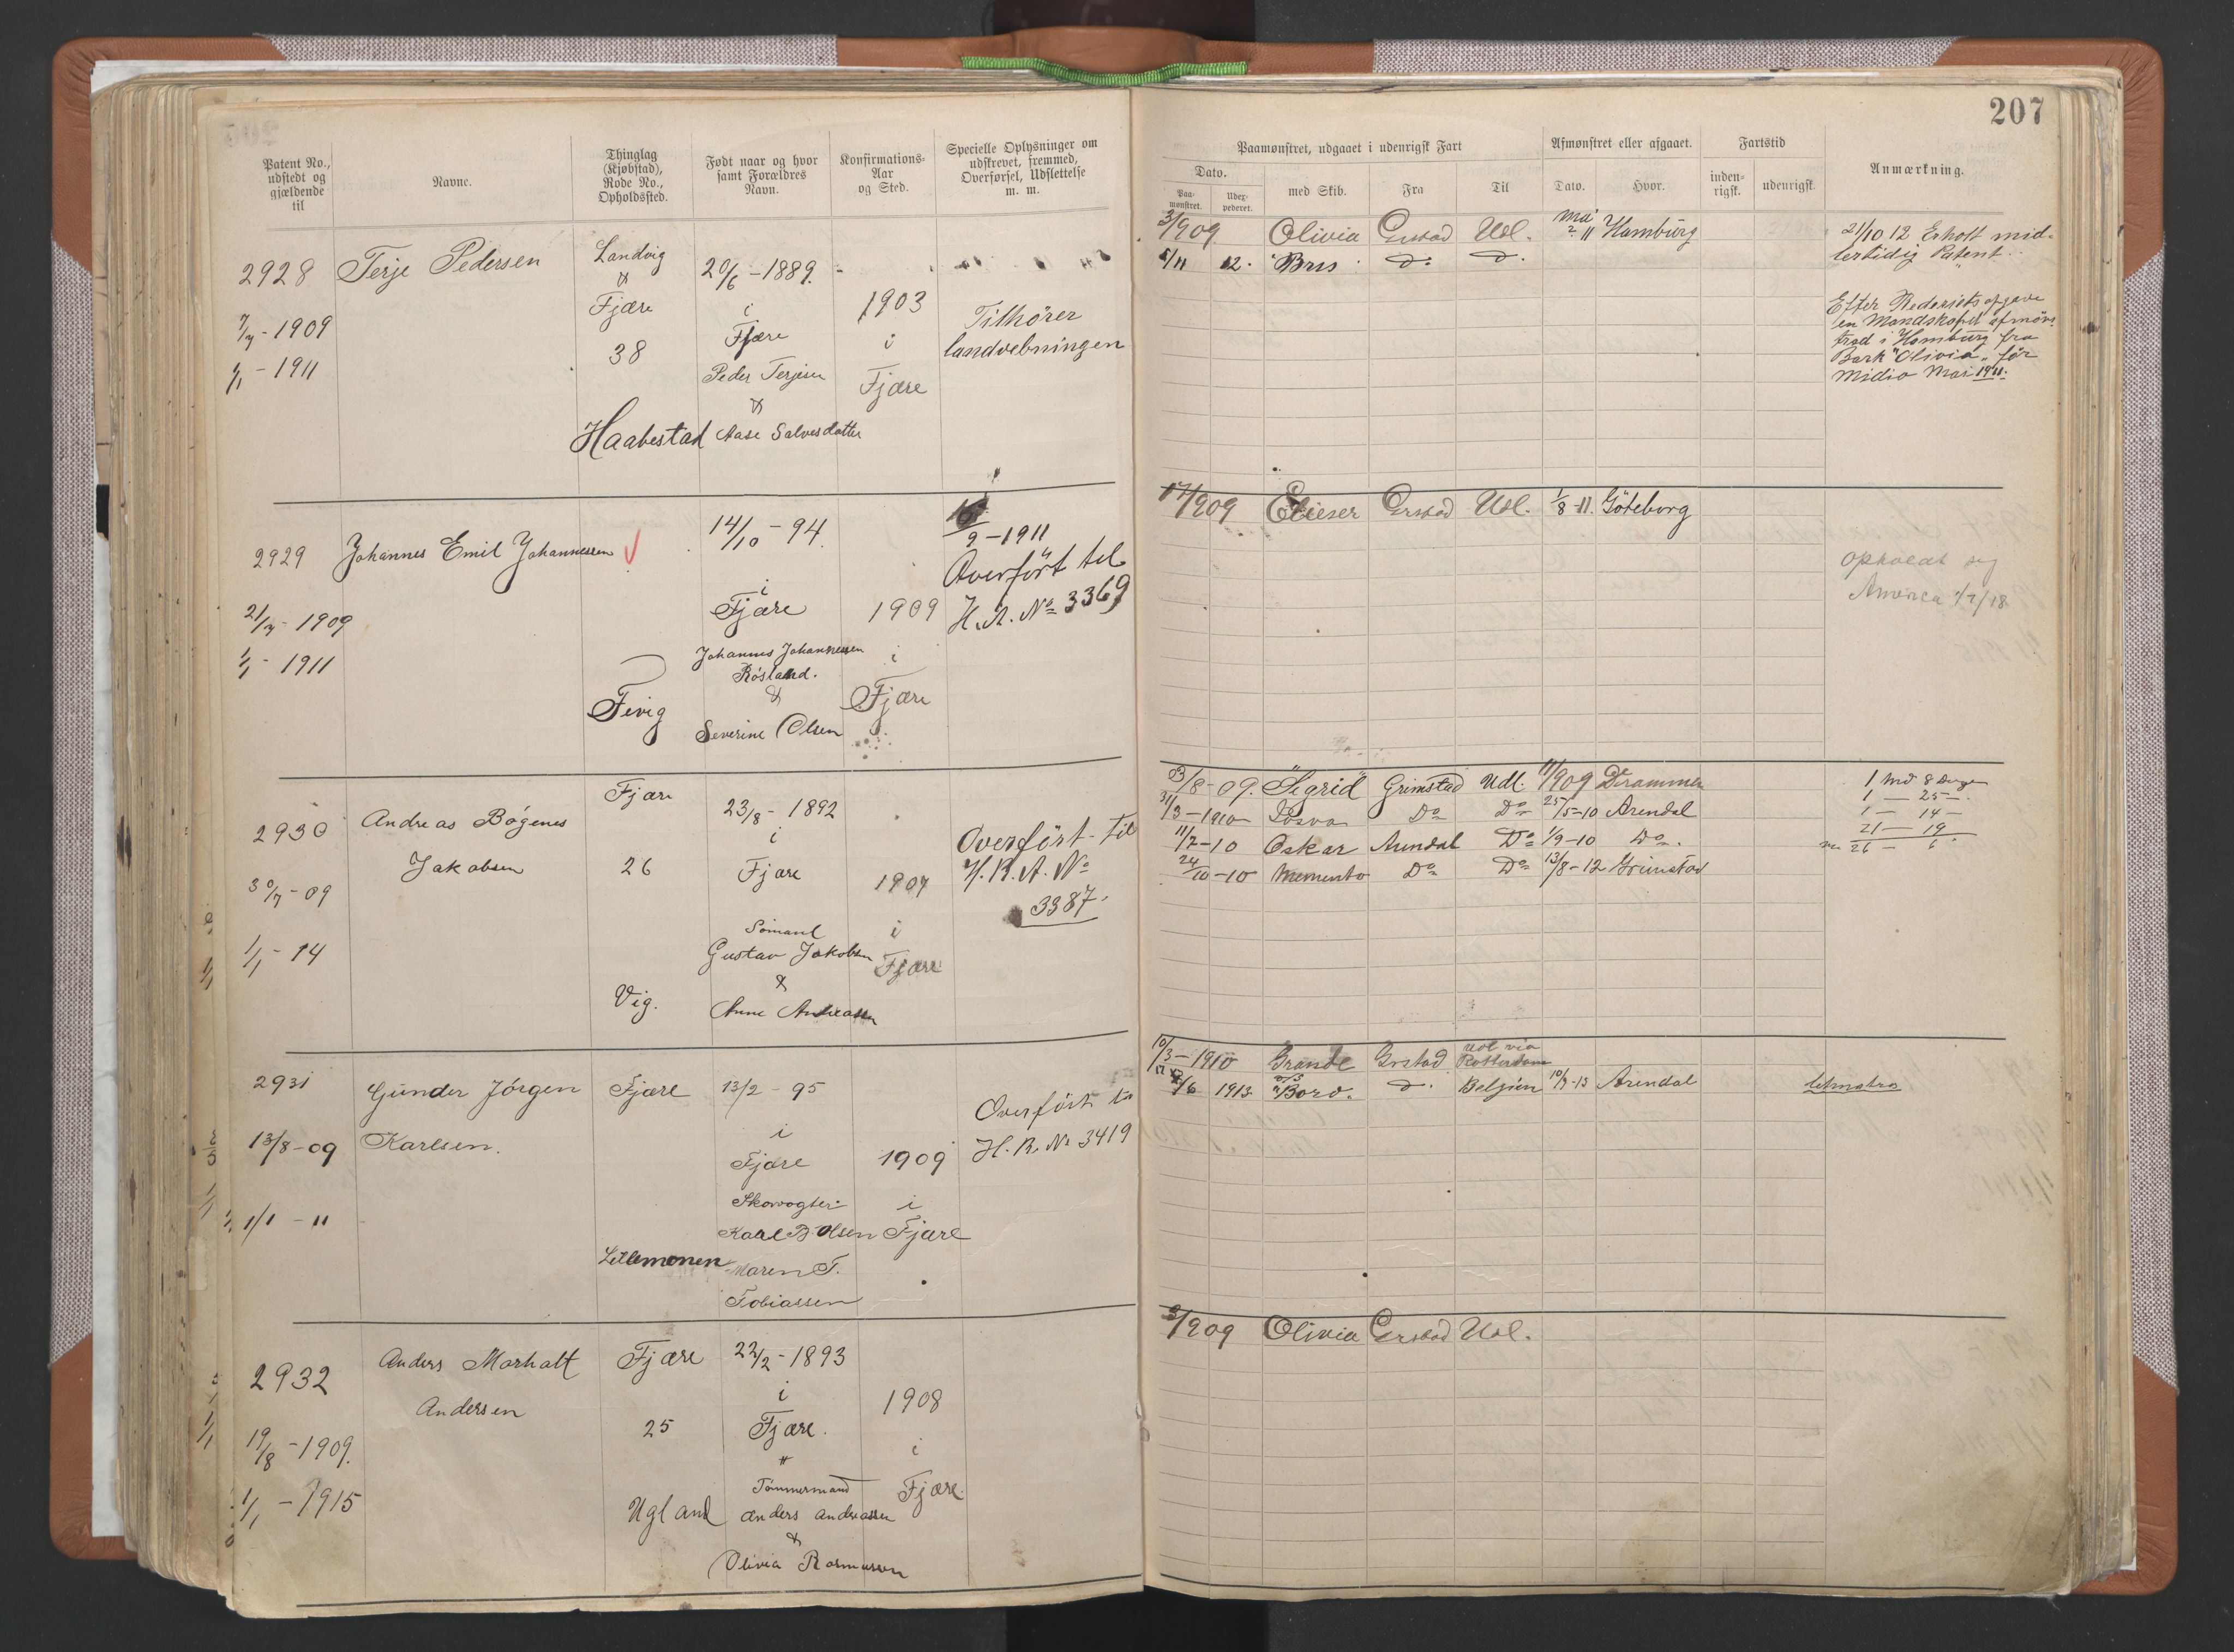 207
Patent No.,
udstedt og
gjældende
til
Navne.
Thinglag
(Kjøbstad),
Rode No.,
Opholdssted.
Født naar og hvor
samt Forældres
Navn.
Konfirmations-
Aar
og Sted.
Specielle Oplysninger om
udskrevet, fremmed,
Overførsel, Udslettelse
m. m.
Paamønstret, udgaaet i udenrigsk Fart
Dato.
Paa-
mønstret.
Udex-
pederet.
med Skib.
Fra
Til
Afmønstret eller afgaaet.
Dato.
Hvor.
Fartstid
inden-
rigsk.
udenrigsk.
Anmærkning.
2928
7/7 - 1909
1/1 - 1911
Terje Pedersen
Landvig
&
Fjære
38
Haabestad
20/6 - 1889.
i
Fjære
Peder Terjesen
&
Aase Salvesdatter
1903
i
Fjære
Tilhörer
landvebningen
3/909 Olivia Grstad Udl. Mai 11 Hamburg
5/11 12. Bris D. D.
21/10 12 Erholt mid-
lertidig Patent.
Efter Rederiets opgave
en Mandskabet afmöns
tred i Hamburg fra
Bark "Olivia" för
Midio Mai 1911.
2929
21/7 - 1909
1/1 - 1911
Johannes Emil Johannessen
Fevig
14/10 - 94.
i
Fjære
Johannes Johannessen
Rösland.
&
Severine Olsen
1909
i
Fjære
9 - 1911
Overfört til
H.R. No 3369
17/909 Elieser Grstad Udl. 1/8 - 11. Göteborg
Opholdt seg
America 1/7/18
2930
30/7 - 09
1/1 - 14
Andreas Bögenes
Jakobsen
Fjære
26
Vig.
23/8 - 1892
i
Fjære
Sömand
Gustav Jakobsen
&
Anne Andreassen
1907
i
Fjære
Overfört til
H.R.A. No
3387.
23/8 - 09. "Sigrid" Grimstad Udl. 11/909 Drammen
31/3 - 1910 Do Do 25/5 - 10 Arendal
11/7 - 10 Oskar Arendal Do 1/9 - 10 Do.
24/10 - 10 Memento Do Do 13/8 - 12 Grimstad
1 Md 8 Dage
1 — 25 —.
1 — 14 —
21 — 19
26 — 6.
2931
13/8 - 09
1/1 - 11
Gunder Jörgen
Karlsen.
Fjære
Lillemonen
13/2 - 95
i
Fjære
Skovvogter
Karl B Olsen
Maren T.
Tobiassen
1909
i
Fjære
Overfört til
H.R. No 3419
10/3 - 1910 Grande Grstad Udl via
Rotterdam
/6 1913 "Bord. D. Belgien 10/9 - 13 Arendal
2932
19/8 - 1909.
1/1 - 1915
Anders Marhalt
Andersen
Fjære
25
Ugland
22/2 - 1893
i
Fjære.
Tömmermand
Anders Andreassen
&
Olivia Rasmussen
1908
i
Fjære.
3/909 Olivia Grstad Udl.